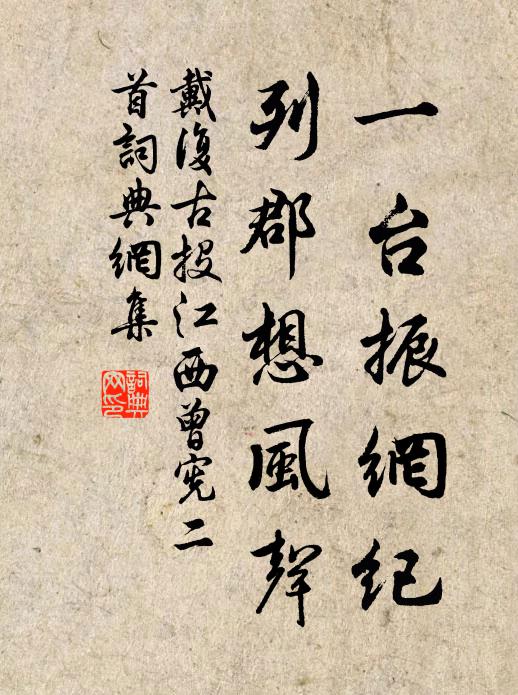 一台振網紀
列郡想風聲
戴復古投江西曾宪二
首詞典網集
詞典
网印